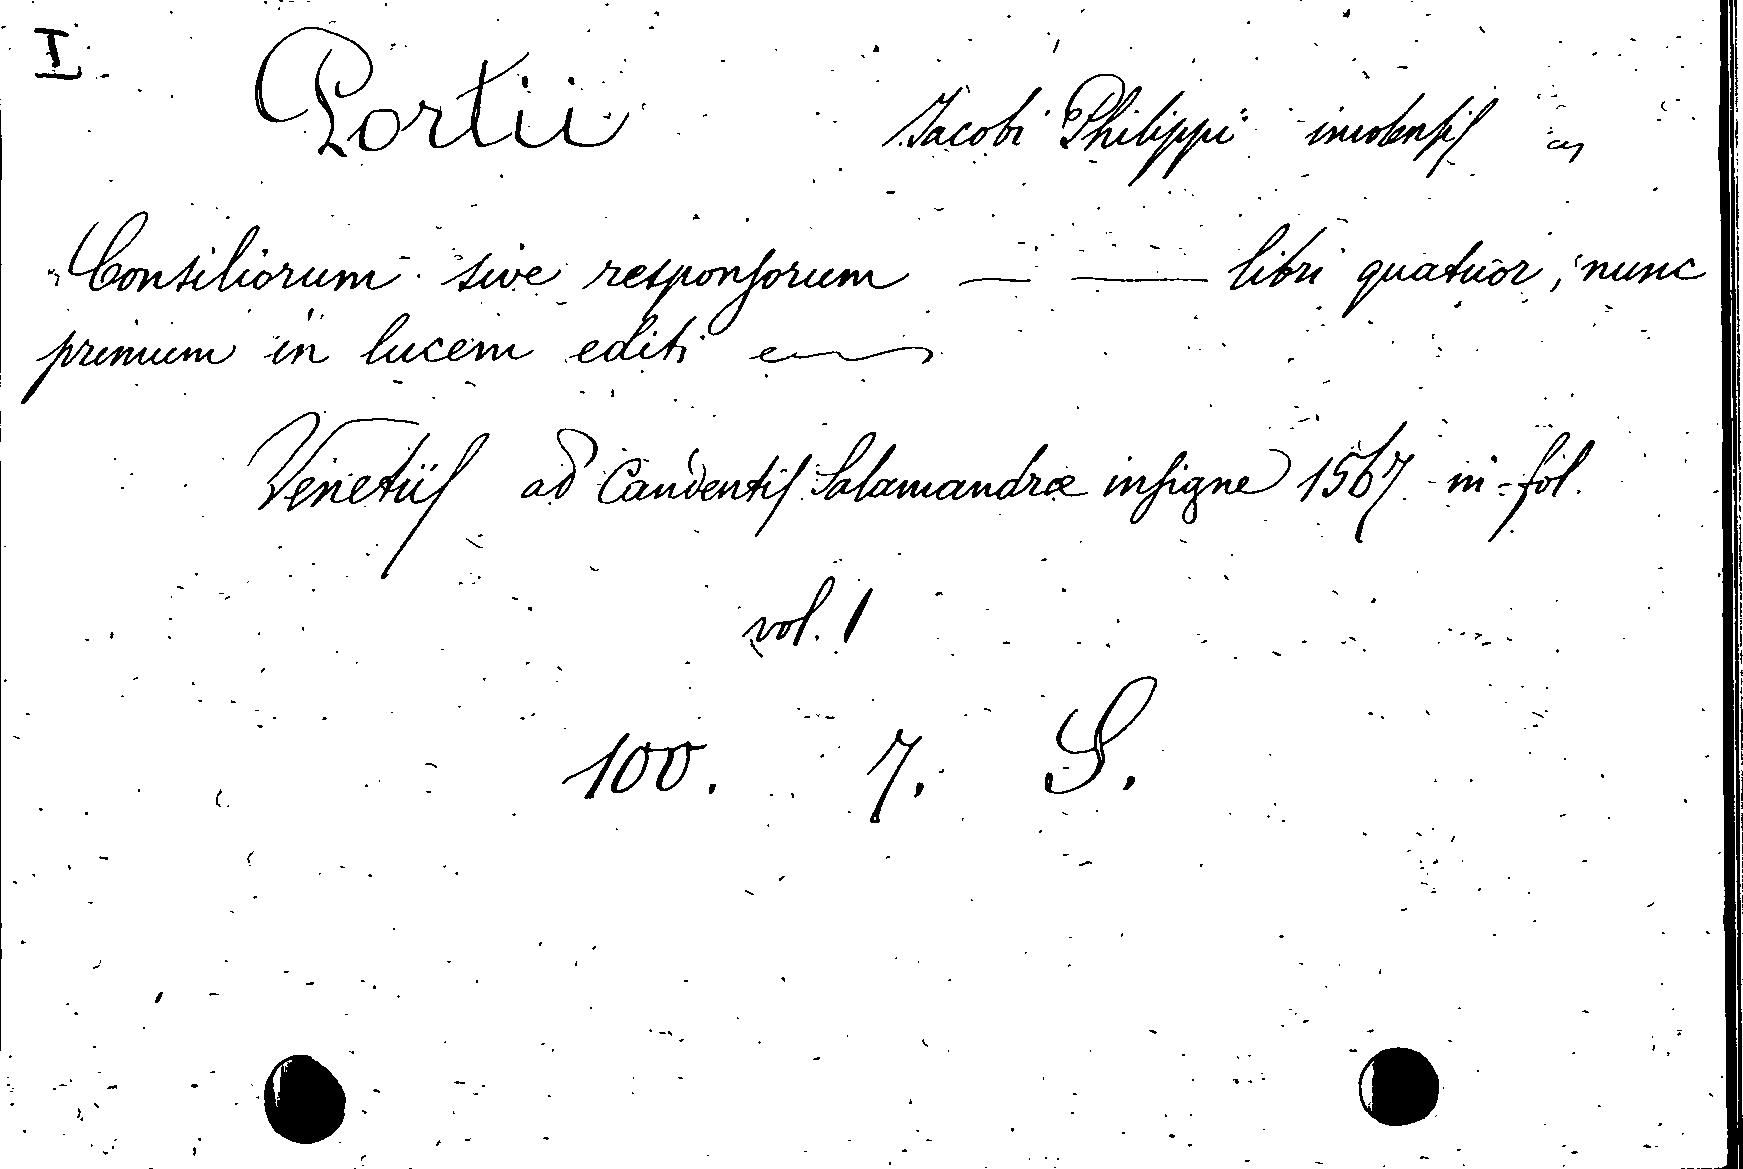 I
Portii Jacobi Philippi imolensis
Consiliorum sive responsorum — — libri quatuor, nunc
primum in lucem editi
Venetiis ad Candentis Salamandræ insigne 1567 in-fol.
vol. 1
100. 7. S.